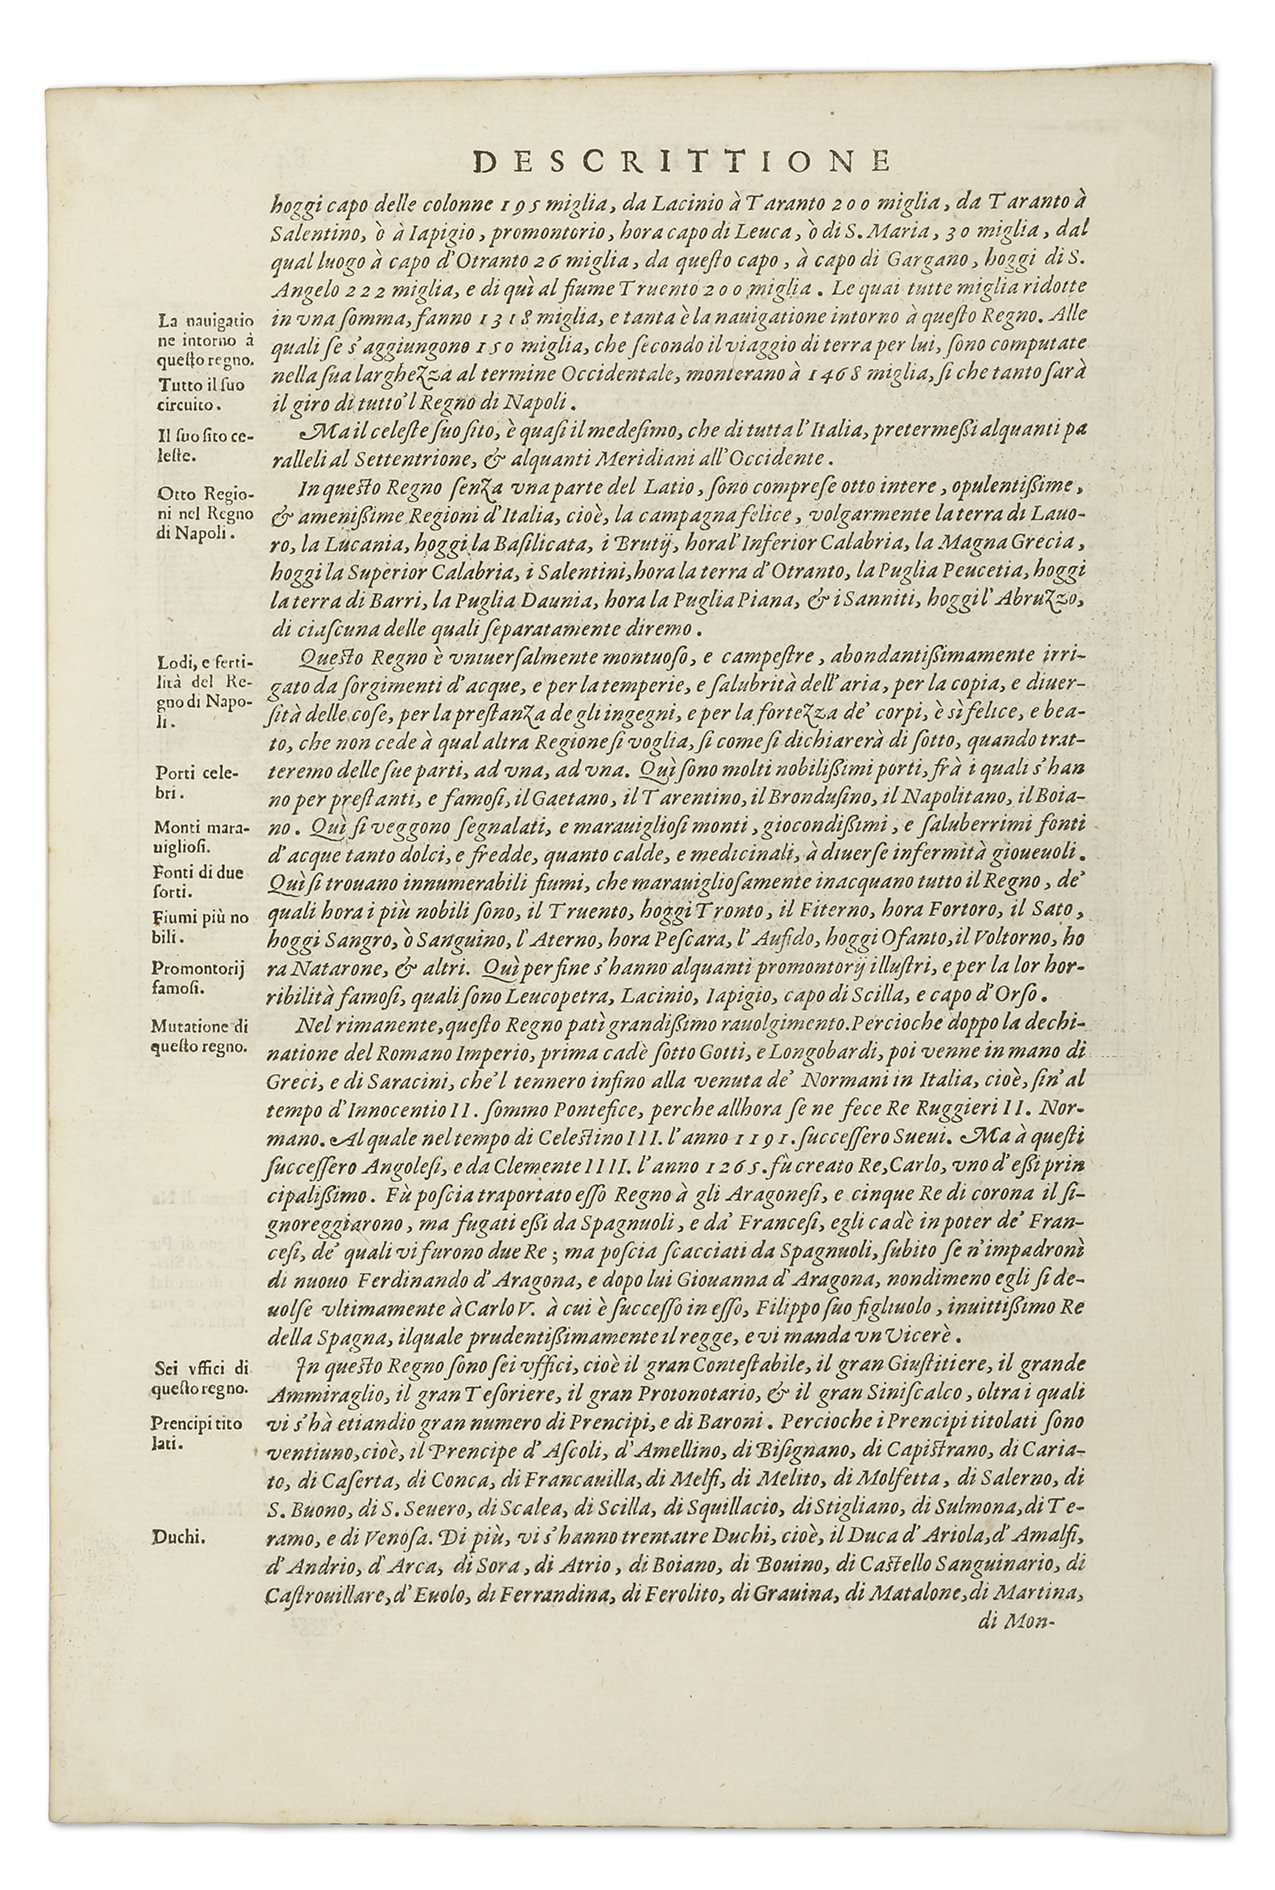 DESCRITTIONE
hoggi capo delle colonne 195 miglia, da Lacinio à Taranto 200 miglia, da Taranto à
Salentino, ò à Iapigio, promontorio, hora capo di Leuca, ò di S. Maria, 30 miglia, dal
qual luogo à capo d'Otranto 26 miglia, da questo capo, à capo di Gargano, hoggi di S.
Angelo 222 miglia, e di quì al fiume Truento 200 miglia. Le quai tutte miglia ridotte
La nauigatio
ne intorno à
questo regno.
Tutto il suo
circuito.
in vna somma, fanno 1318 miglia, e tanta è la nauigatione intorno à questo Regno. Alle
quali se s'aggiungono 150 miglia, che secondo il viaggio di terra per lui, sono computate
nella sua larghezza al termine Occidentale, monterano à 1468 miglia, si che tanto sarà
il giro di tutto'l Regno di Napoli.
Il suo sito ce-
leste.
Ma il celeste suo sito, è quasi il medesimo, che di tutta l'Italia, pretermeßi alquanti pa
ralleli al Settentrione, & alquanti Meridiani all'Occidente.
Otto Regio-
ni nel Regno
di Napoli.
In questo Regno senza vna parte del Latio, sono comprese otto intere, opulentißime,
& amenißime Regioni d'Italia, cioè, la campagna felice, volgarmente la terra di Lauo-
ro, la Lucania, hoggi la Basilicata, i Brutij, hora l'Inferior Calabria, la Magna Grecia,
hoggi la Superior Calabria, i Salentini, hora la terra d'Otranto, la Puglia Peucetia, hoggi
la terra di Barri, la Puglia Daunia, hora la Puglia Piana, & i Sanniti, hoggi l'Abruzzo,
di ciascuna delle quali separatamente diremo.
Lodi, e ferti-
lità del Re-
gno di Napo-
li.
Questo Regno è vniuersalmente montuoso, e campestre, abondantißimamente irri-
gato da sorgimenti d'acque, e per la temperie, e salubrità dell'aria, per la copia, e diuer-
sità delle cose, per la prestanza de gli ingegni, e per la fortezza de' corpi, è sì felice, e bea-
to, che non cede à qual altra Regione si voglia, si come si dichiarerà di sotto, quando trat-
Porti cele-
bri.
teremo delle sue parti, ad vna, ad vna. Quì sono molti nobilißimi porti, frà i quali s'han
no per prestanti, e famosi, il Gaetano, il Tarentino, il Brondusino, il Napolitano, il Boia-
Monti mara-
uigliosi.
Fonti di due
sorti.
no. Quì si veggono segnalati, e marauigliosi monti, giocondißimi, e saluberrimi fonti
d'acque tanto dolci, e fredde, quanto calde, e medicinali, à diuerse infermità gioueuoli.
Quì si trouano innumerabili fiumi, che marauigliosamente inacquano tutto il Regno, de'
Fiumi più no
bili.
quali hora i più nobili sono, il Truento, hoggi Tronto, il Fiterno, hora Fortoro, il Sato,
hoggi Sangro, ò Sanguino, l'Aterno, hora Pescara, l'Aufido, hoggi Ofanto, il Voltorno, ho
Promontorij
famosi.
ra Natarone, & altri. Quì per fine s'hanno alquanti promontorij illustri, e per la lor hor-
ribilità famosi, quali sono Leucopetra, Lacinio, Iapigio, capo di Scilla, e capo d'Orso.
Mutatione di
questo regno.
Nel rimanente, questo Regno patì grandißimo rauolgimento. Percioche doppo la dechi-
natione del Romano Imperio, prima cadè sotto Gotti, e Longobardi, poi venne in mano di
Greci, e di Saracini, che'l tennero infino alla venuta de' Normani in Italia, cioè, sin' al
tempo d'Innocentio II. sommo Pontefice, perche allhora se ne fece Re Ruggieri II. Nor-
mano. Al quale nel tempo di Celestino III. l'anno 1191. successero Sueui. Ma à questi
successero Angolesi, e da Clemente IIII. l'anno 1265. fù creato Re, Carlo, vno d'eßi prin
cipalißimo. Fù poscia traportato esso Regno à gli Aragonesi, e cinque Re di corona il si-
gnoreggiarono, ma fugati eßi da Spagnuoli, e da' Francesi, egli cadè in poter de' Fran-
cesi, de' quali vi furono due Re; ma poscia scacciati da Spagnuoli, subito se n'impadronì
di nuouo Ferdinando d'Aragona, e dopo lui Giouanna d'Aragona, nondimeno egli si de-
uolse vltimamente à Carlo V. à cui è successo in esso, Filippo suo figliuolo, inuittißimo Re
della Spagna, ilquale prudentißimamente il regge, e vi manda vn Vicerè.
Sei vffici di
questo regno.
In questo Regno sono sei vffici, cioè il gran Contestabile, il gran Giustitiere, il grande
Ammiraglio, il gran Tesoriere, il gran Protonotario, & il gran Siniscalco, oltra i quali
Prencipi tito
lati.
vi s'hà etiandio gran numero di Prencipi, e di Baroni. Percioche i Prencipi titolati sono
ventiuno, cioè, il Prencipe d'Ascoli, d'Amellino, di Bisignano, di Capistrano, di Caria-
to, di Caserta, di Conca, di Francauilla, di Melfi, di Melito, di Molfetta, di Salerno, di
S. Buono, di S. Seuero, di Scalea, di Scilla, di Squillacio, di Stigliano, di Sulmona, di Te-
Duchi.
ramo, e di Venosa. Di più, vi s'hanno trentatre Duchi, cioè, il Duca d'Ariola, d'Amalfi,
d'Andrio, d'Arca, di Sora, di Atrio, di Boiano, di Bouino, di Castello Sanguinario, di
Castrouillare, d'Euolo, di Ferrandina, di Ferolito, di Grauina, di Matalone, di Martina,
di Mon-